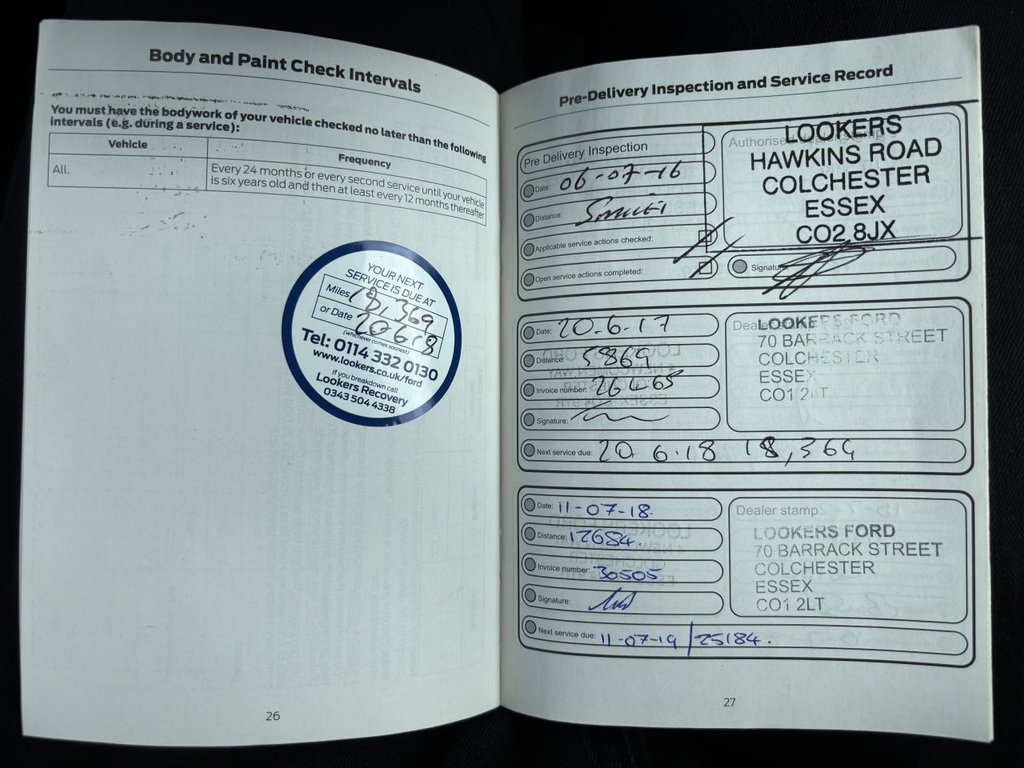 Body and Paint Check Intervals
You must have the bodywork of your vehicle checked no later than the following
intervals (e.g. during a service):
Vehicle Frequency
All. Every 24 months or every second service until your vehicle
is six years old and then at least every 12 months thereafter
YOUR NEXT
SERVICE IS DUE AT
Miles 18,369
or Date 20.6.18
(whichever comes soonest)
Tel: 0114 332 0130
www.lookers.co.uk/ford
If you breakdown call
Lookers Recovery
0343 504 4338
26
Pre-Delivery Inspection and Service Record
Pre Delivery Inspection
Date: 06-07-16
Distance:
Applicable service actions checked:
Open service actions completed:
Authorised
LOOKERS
HAWKINS ROAD
COLCHESTER
ESSEX
CO2 8JX
Signature
Date: 20.6.17
Distance: 5869
Invoice number: 26465
Signature:
Next service due: 20.6.18 18,369
Dealer stamp
LOOKERS FORD
70 BARRACK STREET
COLCHESTER
ESSEX
CO1 2LT
Date: 11-07-18
Distance: 12684
Invoice number: 30505
Signature:
Next service due: 11-07-19/25184.
Dealer stamp
LOOKERS FORD
70 BARRACK STREET
COLCHESTER
ESSEX
CO1 2LT
27